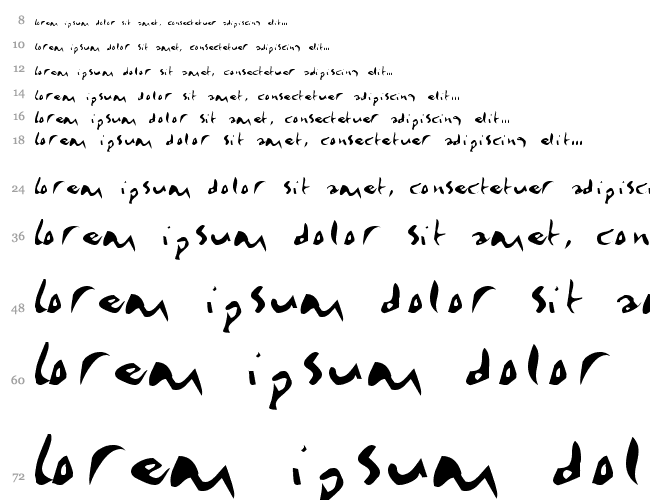 8 lorem ipsum dolor sit amet, consectetuer adipiscing elit...
10 lorem ipsum dolor sit amet, consectetuer adipiscing elit...
12 lorem ipsum dolor sit amet, consectetuer adipiscing elit...
14 lorem ipsum dolor sit amet, consectetuer adipiscing elit...
16 lorem ipsum dolor sit amet, consectetuer adipiscing elit...
18 lorem ipsum dolor sit amet, consectetuer adipiscing elit...
24 lorem ipsum dolor sit amet, consectetuer adipisci
36 lorem ipsum dolor sit amet, con
48 lorem ipsum dolor sit a
60 lorem ipsum dolor
72 lorem ipsum dol